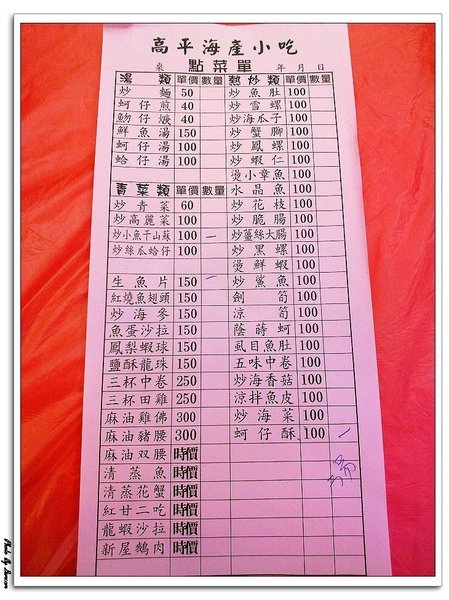 高平海產小吃
桌 點菜單 年 月 日
湯類 單價 數量 熱炒類 單價 數量
炒麵 50 炒魚肚 100
蚵仔煎 40 炒雪螺 100
魩仔焿 40 炒海瓜子 100
鮮魚湯 150 炒蟹腳 100
蚵仔湯 100 炒鳳螺 100
蛤仔湯 100 炒蝦仁 100
燙小章魚 100
青菜類 單價 數量 水晶魚 100
炒青菜 60 炒花枝 100
炒高麗菜 100 炒脆腸 100
炒小魚干山蘇 100 一 炒薑絲大腸 100
炒絲瓜蛤仔 100 炒黑螺 100
燙鮮蝦 100
生魚片 150 一 炒鯊魚 100
紅燒魚翅頭 150 劍筍 100
炒海參 150 涼筍 100
魚蛋沙拉 150 蔭蒔蚵 100
鳳梨蝦球 150 虱目魚肚 100
鹽酥龍珠 150 五味中卷 100
三杯中卷 250 炒海香菇 100
三杯田雞 250 涼拌魚皮 100
麻油雞佛 300 炒海菜 100
麻油豬腰 300 蚵仔酥 100 一
麻油双腰 時價
清蒸魚 時價
清蒸花蟹 時價
紅甘二吃 時價
龍蝦沙拉 時價
新屋鵝肉 時價
湯
Photo By